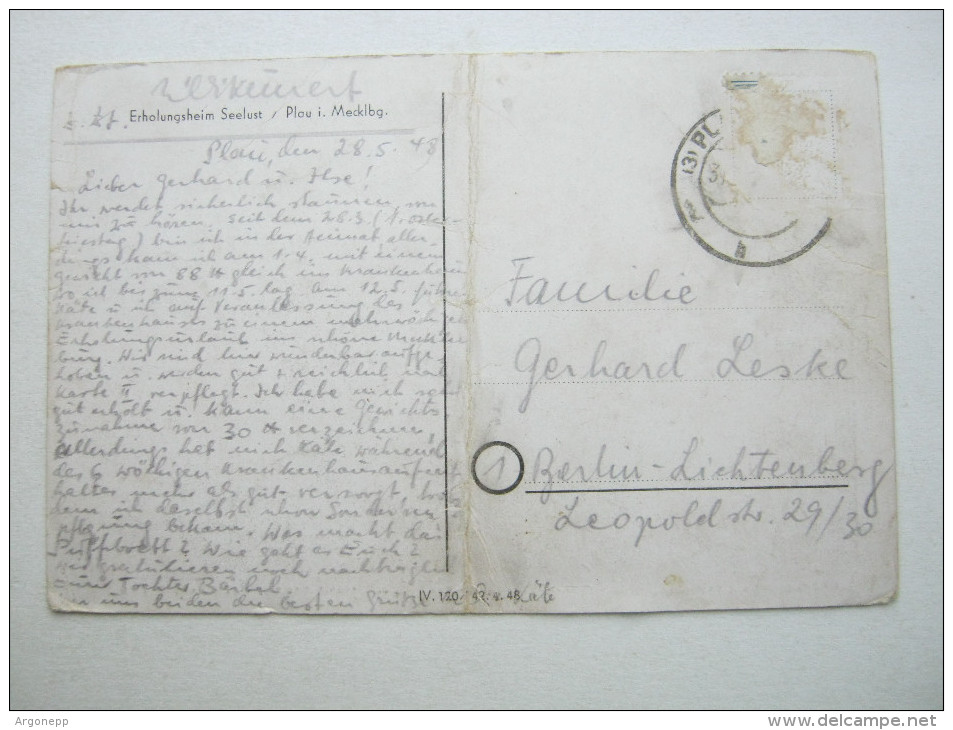 Erholungsheim Seelust / Plau i. Mecklbg.
Plau, den 28.5.48
Lieber Gerhard u. Ilse!
Ihr werdet sicherlich staunen, von
mir zu hören. Seit dem 28.3. (1. Oster-
feiertag) bin ich in der Heimat aller-
dings kam ich am 1.4. mit einem
gewicht von 88 ℔ gleich ins Krankenhaus
wo ich bis zum 11.5. lag am 12.5. fuhren
Käte u. ich auf Veranlassung des
Krankenhauses zu einem mehrwöchigen
Erholungsurlaub ins schöne Mecklen
burg. Wir sind hier wunderbar aufge-
hoben u. werden gut & reichlich nach
Karte II verpflegt. Ich habe mich sehr
gut erholt u. kann eine Gewichts
zunahme von 30 ℔ verzeichnen,
allerdings hat mich Käte während
des 6 wöchigen Krankenhausaufent
haltes mehr als gut versorgt, trotz
dem ich daselbst schon Sonderver
pflegung bekam. Was macht das
Puffbrett? Wie geht es Euch?
Wir gratulieren noch nachträglich
Eurer Tochter Bärbel
von uns beiden die besten Grüße Käte
IV. 1.20. 48
(3) PL
b
Familie
Gerhard Leske
1 Berlin-Lichtenberg
Leopoldstr. 29/30
Argonepp
www.delcampe.net